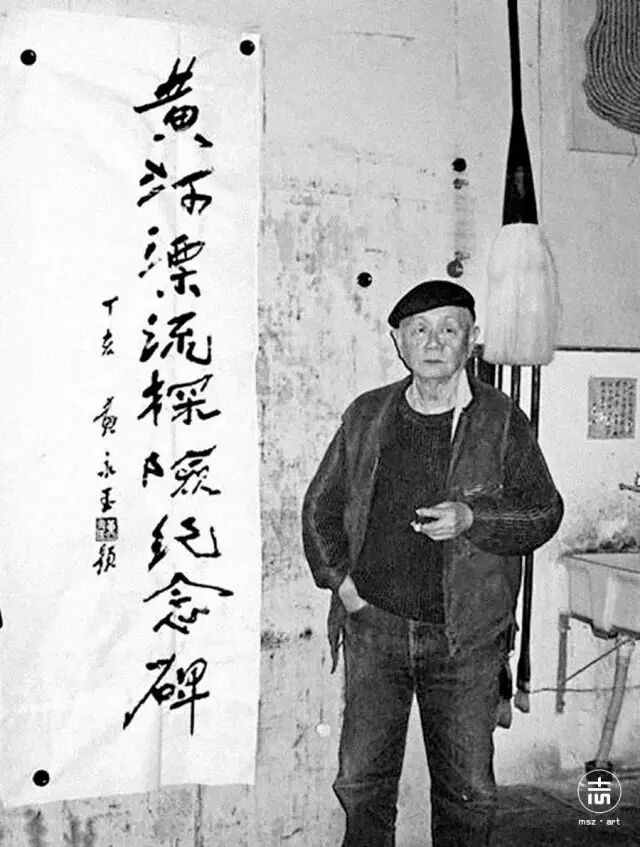 黄河漂流探险纪念碑
丁亥 黄永玉 题
msz·art